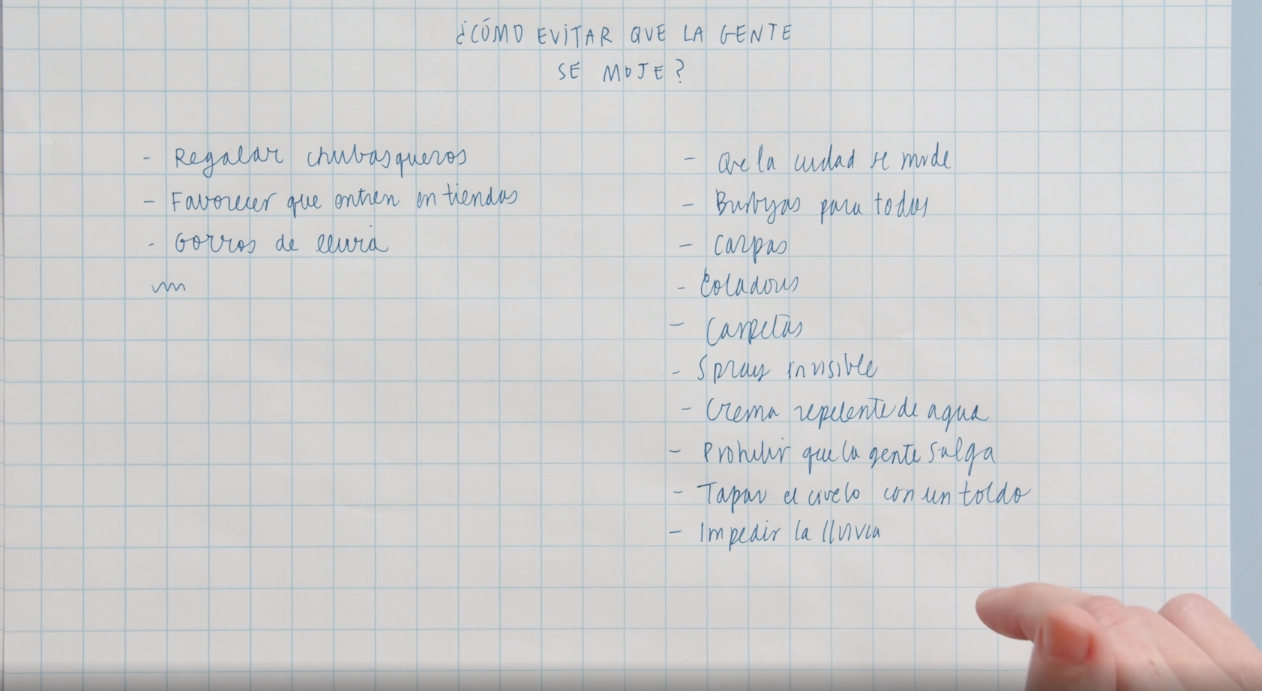 ¿CÓMO EVITAR QUE LA GENTE
SE MOJE?
- Regalar chubasqueros
- Favorecer que entren en tiendas
- Gorros de lluvia
- Que la ciudad se mude
- Burbujas para todos
- Carpas
- Coladores
- Carpetas
- Spray invisible
- Crema repelente de agua
- Prohibir que la gente salga
- Tapar el cielo con un toldo
- Impedir la lluvia